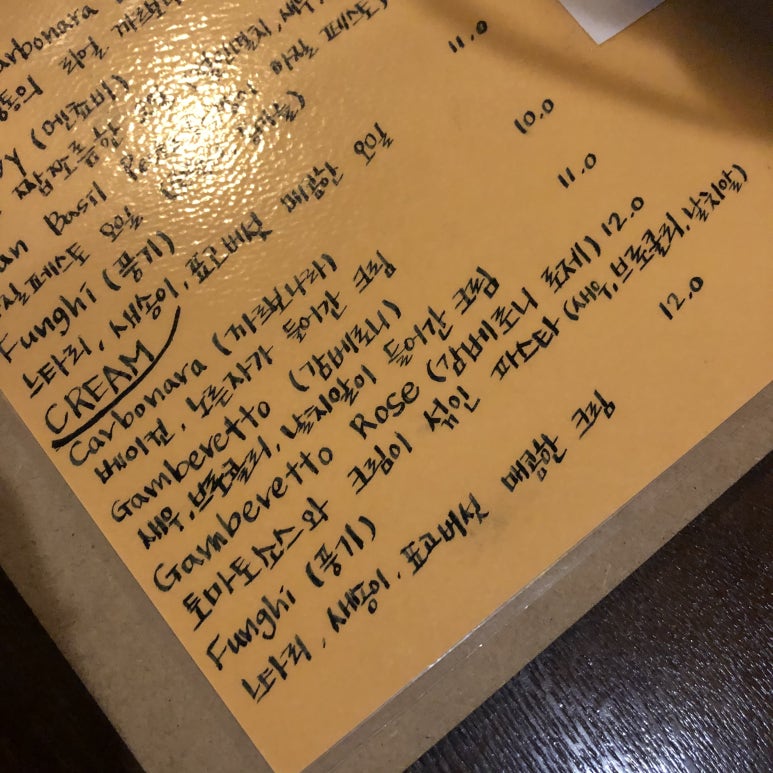 arbonara
오일 까르보나
11.0
an Basil Pes
오일
10.0
Funghi (풍기)
느타리, 새송이, 표고버섯 매콤한 오일
CREAM
Carbonara (까르보나라) 11.0
베이컨, 노른자가 들어간 크림
Gamberetto (감베로니) 12.0
새우, 브로콜리, 날치알이 들어간 크림
Gamberetto Rose (감베로니 로제) 12.0
토마토소스와 크림이 섞인 파스타 (새우, 브로콜리, 날치알)
Funghi (풍기)
느타리, 새송이, 표고버섯 매콤한 크림